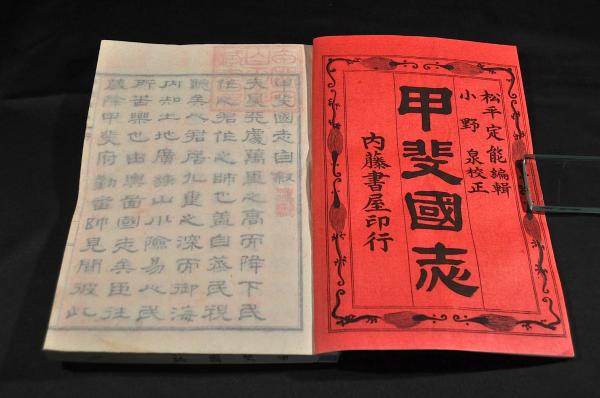 松平定能編輯
小野泉校正
甲斐國志
内藤書屋印行
甲斐國志自叙
夫皇天處萬里之高而降下民
君任之師也蓋自蒸民視
聽矣人君居九重之深而御海
内知土地廣狹山川險易心民
所苦樂也由輿圖國志矣臣往
歳除甲斐府勤番帥見聞彼此